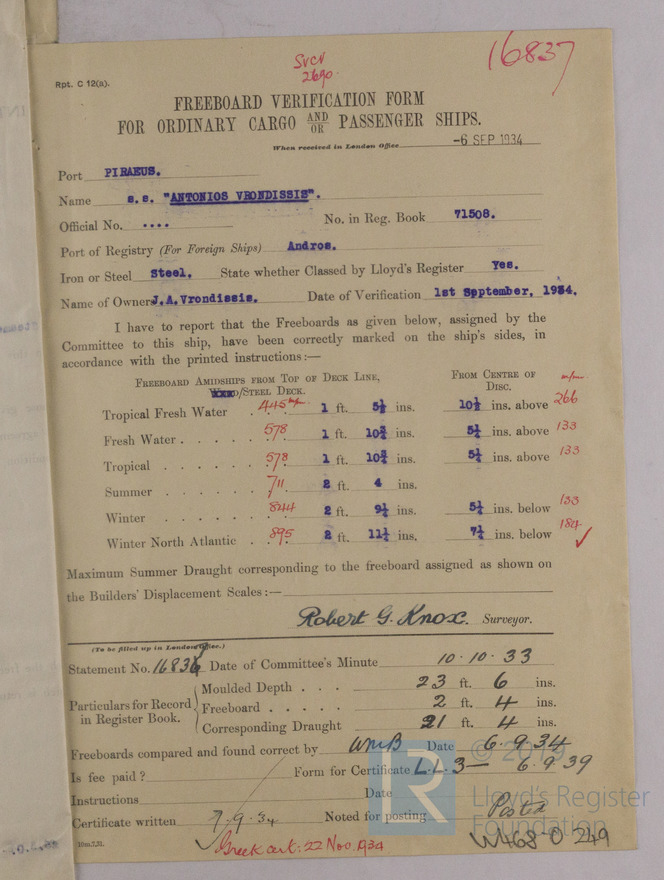 16837
SVCV
2690.
Rpt. C 12(a).
FREEBOARD VERIFICATION FORM
FOR ORDINARY CARGO AND/OR PASSENGER SHIPS.
When received in London Office -6 SEP 1934
Port PIRAEUS.
Name s.s. "ANTONIOS VRONDISSIS".
Official No. .... No. in Reg. Book 71508.
Port of Registry (For Foreign Ships) Andros.
Iron or Steel Steel. State whether Classed by Lloyd's Register Yes.
Name of Owners J.A.Vrondissis. Date of Verification 1st September, 1934.
I have to report that the Freeboards as given below, assigned by the
Committee to this ship, have been correctly marked on the ship's sides, in
accordance with the printed instructions:—
FREEBOARD AMIDSHIPS FROM TOP OF DECK LINE, FROM CENTRE OF
/STEEL DECK. DISC. m/m
Tropical Fresh Water 445 m/m 1 ft. 5½ ins. 10½ ins. above 266
Fresh Water 578 1 ft. 10¾ ins. 5¼ ins. above 133
Tropical 578 1 ft. 10¾ ins. 5¼ ins. above 133
Summer 711 2 ft. 4 ins.
Winter 844 2 ft. 9¼ ins. 5¼ ins. below 133
Winter North Atlantic 895 2 ft. 11¼ ins. 7¼ ins. below 184
Maximum Summer Draught corresponding to the freeboard assigned as shown on
the Builders' Displacement Scales:—
Robert G. Knox. Surveyor.
(To be filled up in London Office.)
Statement No. 16836 Date of Committee's Minute 10.10.33
Particulars for Record in Register Book.
Moulded Depth . . . 23 ft. 6 ins.
Freeboard . . . . . 2 ft. 4 ins.
Corresponding Draught 21 ft. 4 ins.
Freeboards compared and found correct by WMB Date 6.9.34
Is fee paid? Form for Certificate L.L.3— 6.9.39
Instructions Date
Certificate written 7.9.34 Noted for posting Posted
10m.7,32. Greek cert: 22 Nov. 1934
W468-0249
© 2019
Lloyd's Register
Foundation